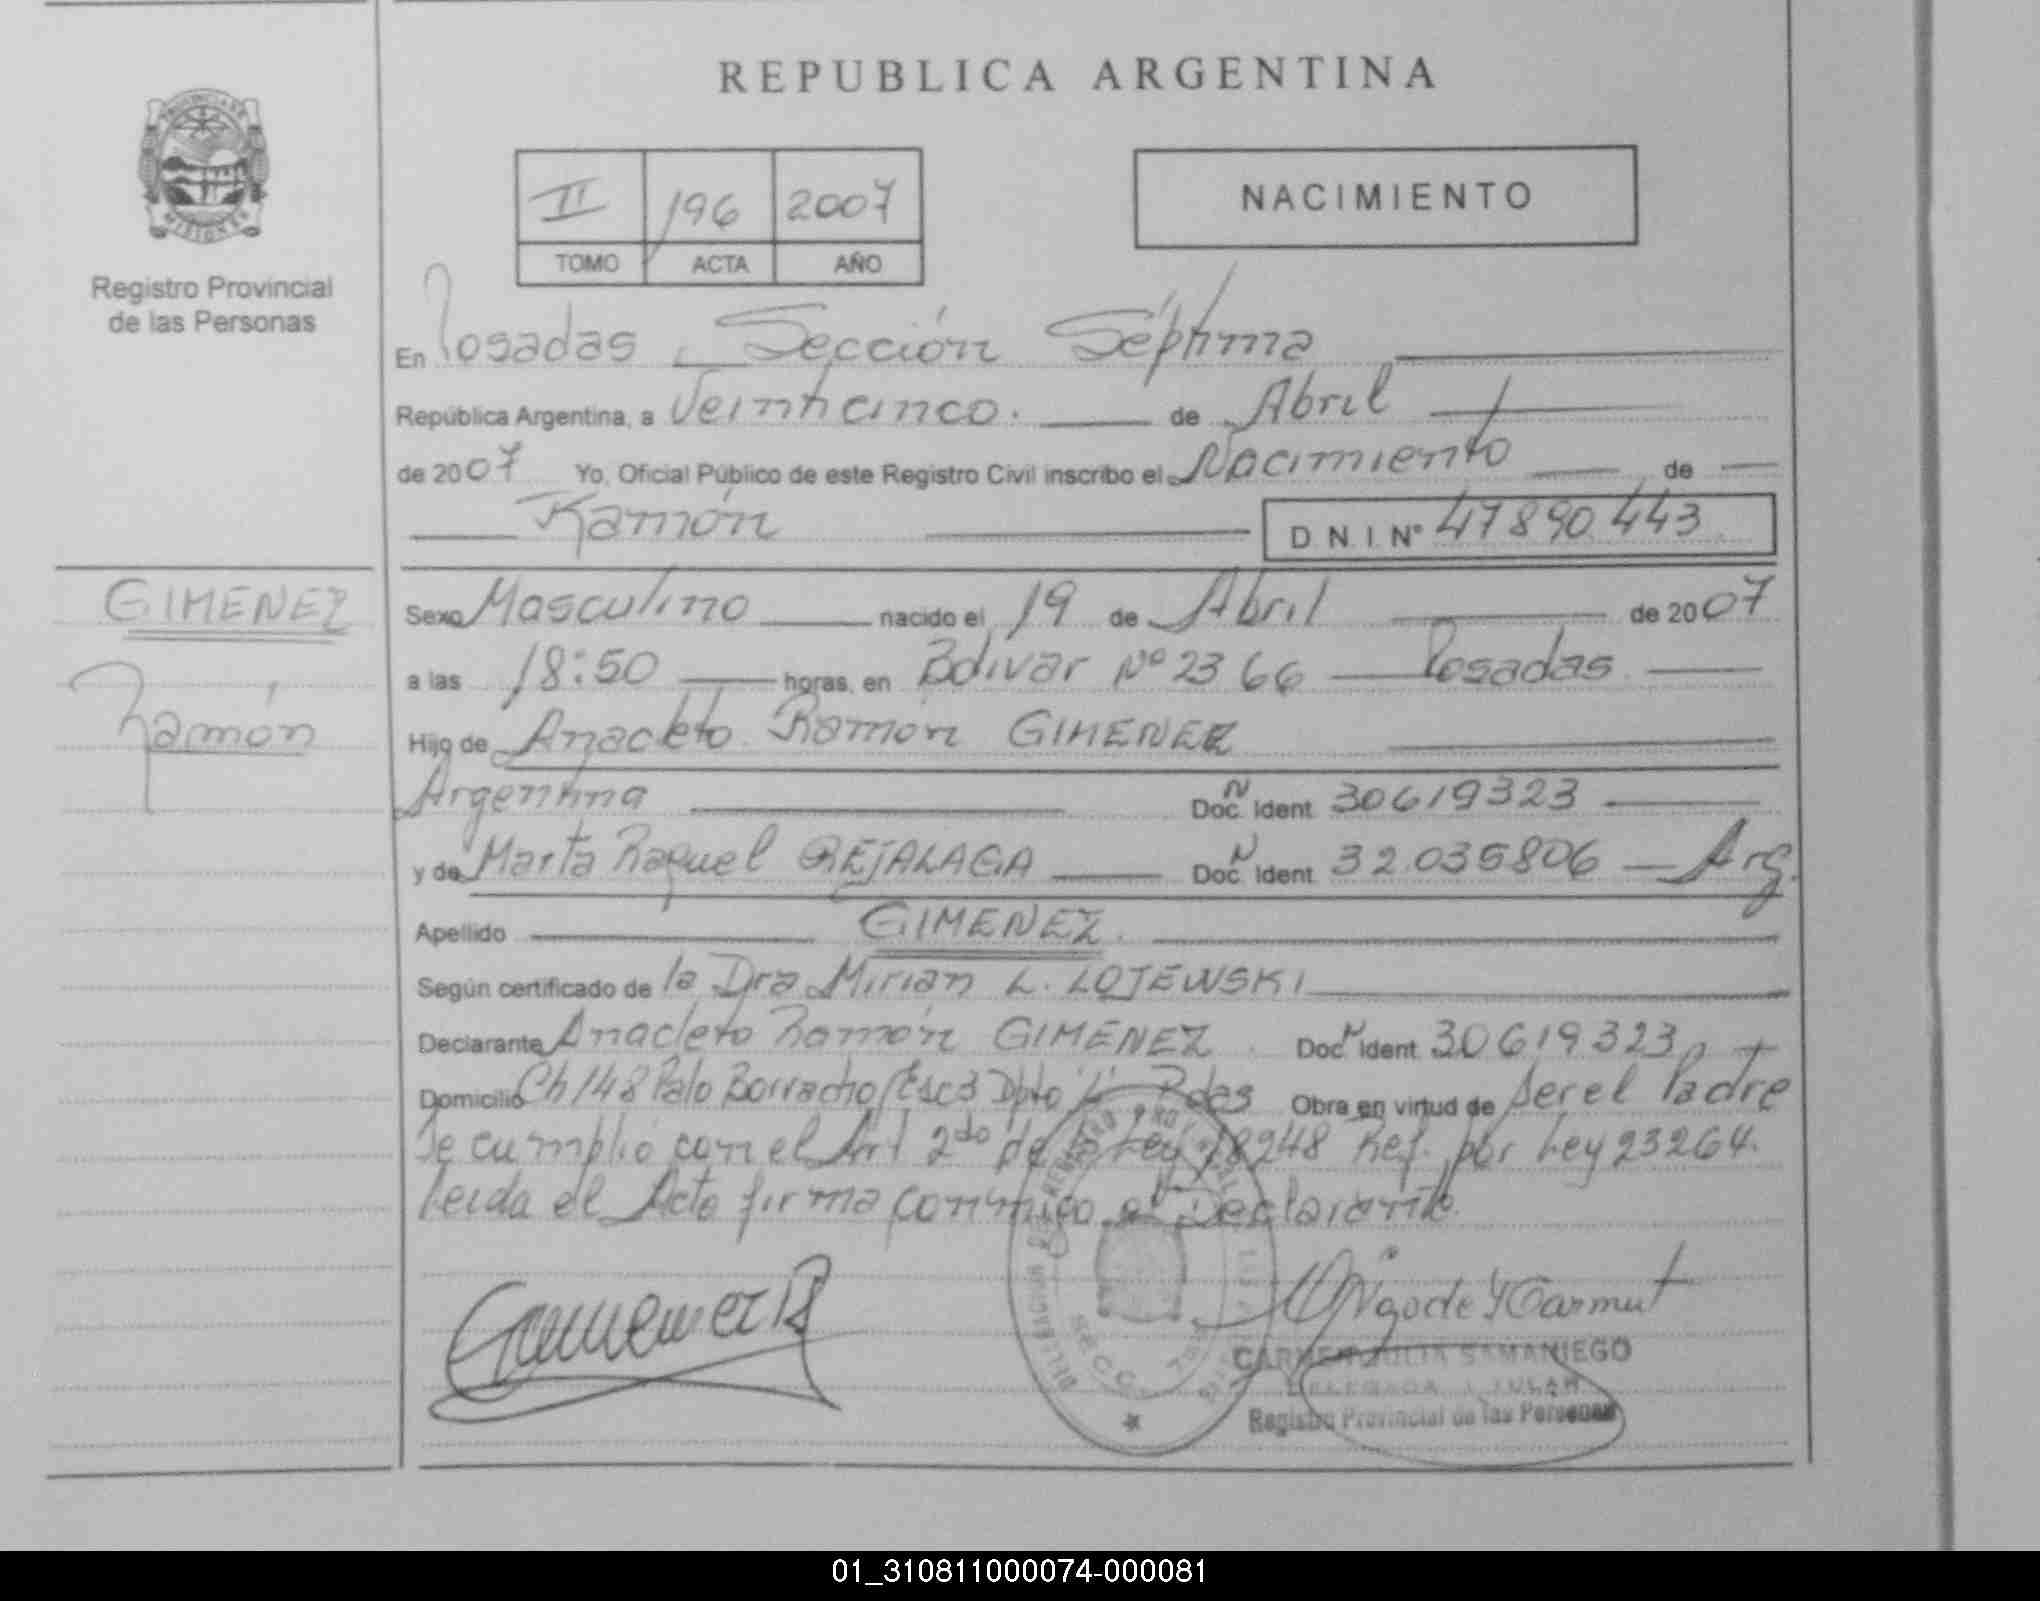 REPUBLICA ARGENTINA
PROVINCIA DE
MISIONES
Registro Provincial
de las Personas
II 196 2007
TOMO ACTA AÑO
NACIMIENTO
En Posadas, Sección Séptima
República Argentina, a Veinticinco. de Abril
de 2007 Yo, Oficial Público de este Registro Civil inscribo el Nacimiento de
Ramón D.N.I. Nº 47890.443
GIMENEZ
Ramón
Sexo Masculino nacido el 19 de Abril de 2007
a las 18:50 horas, en Bolivar Nº 2366 Posadas
Hijo de Anacleto Ramón GIMENEZ
Argentina Doc. N Ident. 30619323
y de Marta Raquel REJALAGA Doc. N Ident. 32.035806 Arg.
Apellido GIMENEZ.
Según certificado de la Dra Mirian L. LOJEWSKI
Declarante Anacleto Ramón GIMENEZ. Doc. N Ident. 30619323
Domicilio Ch 148 Palo Borracho/Esc3 Dpto Pdas Obra en virtud de Ser el Padre
Se cumplió con el Art 2do de la Ley 18248 Ref. por Ley 23264.
Leida el Acta firma conmigo el Declarante.
Gimenez R
SECC.
CARMEN JULIA SAMANIEGO
DELEGADA TITULAR
Registro Provincial de las Personas
01_310811000074-000081